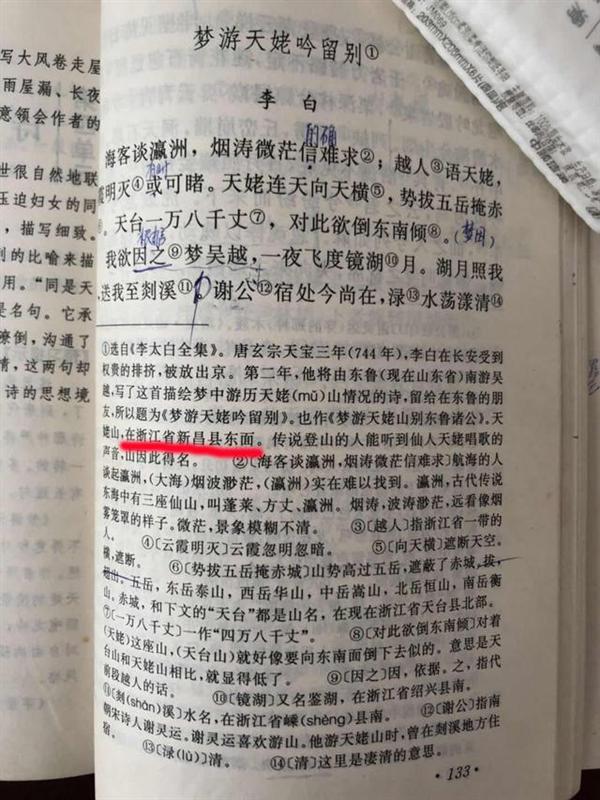 写大风卷走屋
雨屋漏、长夜
意领会作者的
世很自然地联
压迫妇女的同
，描写细致。
列的比喻来描
用。“同是天
是名句。它承
寮倒，沟通了
情，这两句却
诗的思想境
梦游天姥吟留别①
李白
的确
海客谈瀛洲，烟涛微茫信难求②；越人③语天姥，
有时
霞明灭④或可睹。天姥连天向天横⑤，势拔五岳掩赤
⑥。天台一万八千丈⑦，对此欲倒东南倾⑧。(梦因)
根据
我欲因之⑨梦吴越，一夜飞度镜湖⑩月。湖月照我
送我至剡溪⑪。谢公⑫宿处今尚在，渌⑬水荡漾清⑭
①选自《李太白全集》。唐玄宗天宝三年(744年)，李白在长安受到
权贵的排挤，被放出京。第二年，他将由东鲁(现在山东省)南游吴
越，写了这首描绘梦中游历天姥(mǔ)山情况的诗，留给在东鲁的朋
友，所以题为《梦游天姥吟留别》。也作《梦游天姥山别东鲁诸公》。天
姥山，在浙江省新昌县东面。传说登山的人能听到仙人天姥唱歌的
声音，山因此得名。 ②〔海客谈瀛洲，烟涛微茫信难求〕航海的人
谈起瀛洲，(大海)烟波渺茫，(瀛洲)实在难以找到。瀛洲，古代传说
东海中有三座仙山，叫蓬莱、方丈、瀛洲。烟涛，波涛渺茫，远看像烟
雾笼罩的样子。微茫，景象模糊不清。 ③〔越人〕指浙江省一带的
人。 ④〔云霞明灭〕云霞忽明忽暗。 ⑤〔向天横〕遮断天空。
横，遮断。 ⑥〔势拔五岳掩赤城〕山势高过五岳，遮蔽了赤城。拔，
超出。五岳，东岳泰山，西岳华山，中岳嵩山，北岳恒山，南岳衡
山。赤城，和下文的“天台”都是山名，在现在浙江省天台县北部。
⑦〔一万八千丈〕一作“四万八千丈”。 ⑧〔对此欲倒东南倾〕对着
(天姥)这座山，(天台山)就好像要向东南面倒下去似的。意思是天
台山和天姥山相比，就显得低了。 ⑨〔因之〕因，依据。之，指代
前段越人的话。 ⑩〔镜湖〕又名鉴湖，在浙江省绍兴县南。
⑪〔剡(shàn)溪〕水名，在浙江省嵊(shèng)县南。 ⑫〔谢公〕指南
朝宋诗人谢灵运。谢灵运喜欢游山。他游天姥山时，曾在剡溪地方住
宿。 ⑬〔渌(lù)〕清。 ⑭〔清〕这里是凄清的意思。
·133·